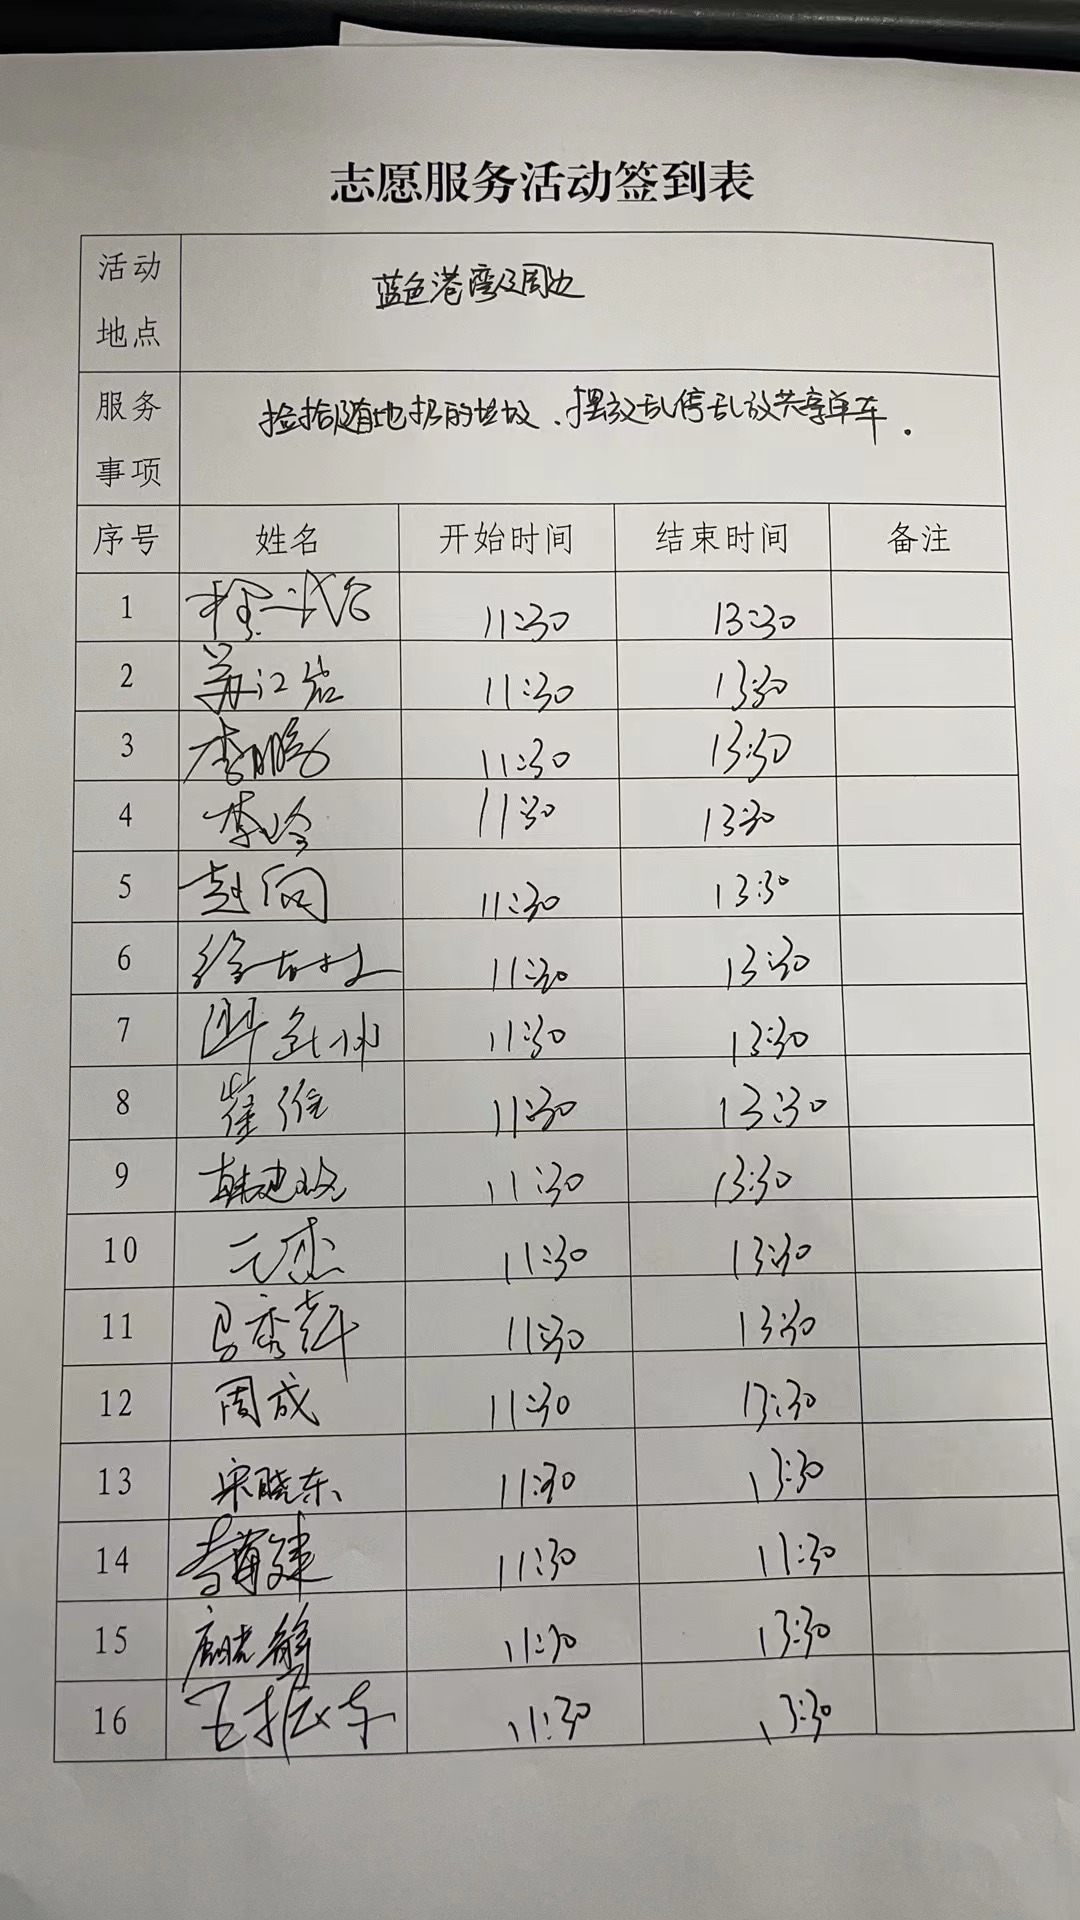 志愿服务活动签到表
活动地点 蓝色港湾及周边
服务事项 捡拾随地扔的垃圾、摆放乱停乱放共享单车。
序号 姓名 开始时间 结束时间 备注
1 11:30 13:30
2 苏江岩 11:30 13:30
3 李鹏 11:30 13:30
4 李玲 11:30 13:30
5 赵向 11:30 13:30
6 11:30 13:30
7 11:30 13:30
8 崔维 11:30 13:30
9 11:30 13:30
10 11:30 13:30
11 马秀 11:30 13:30
12 周成 11:30 13:30
13 宋晓东 11:30 13:30
14 11:30 11:30
15 11:30 13:30
16 11:30 13:30